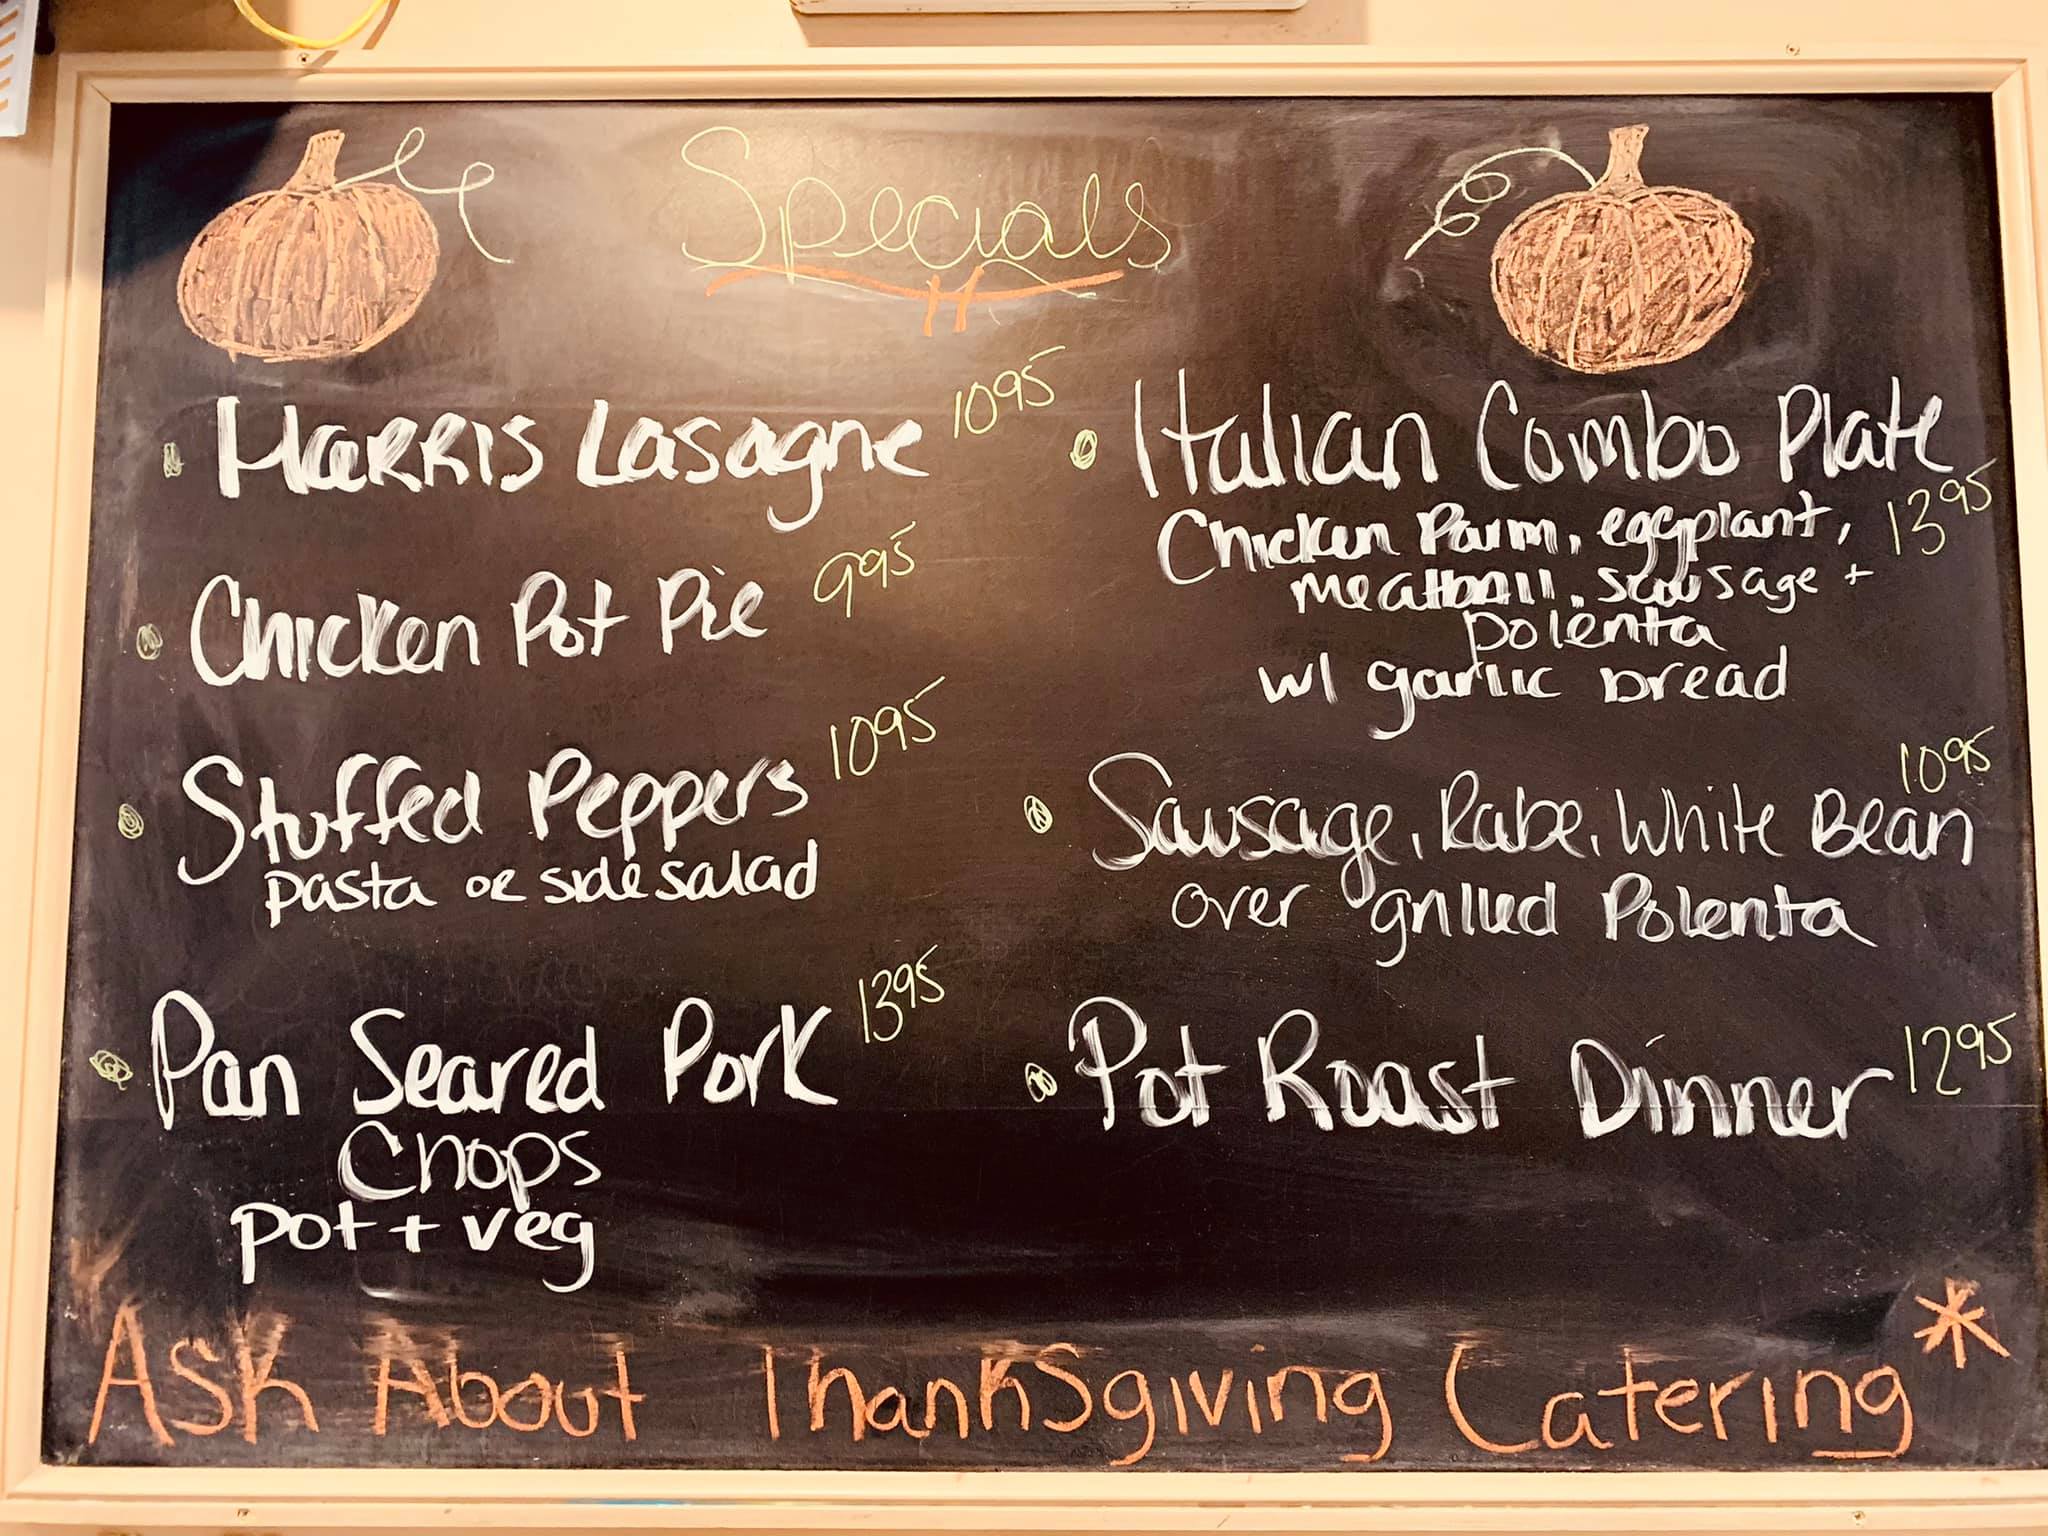 Specials
Harris Lasagne 1095
Chicken Pot Pie 995
Stuffed Peppers 1095
pasta or side salad
Pan Seared Pork 1395
Chops
pot + veg
Italian Combo Plate
Chicken Parm, eggplant, 1395
meatball, sausage +
polenta
w/ garlic bread
1095
Sausage, Rabe, White Bean
over grilled Polenta
Pot Roast Dinner 1295
Ask About Thanksgiving Catering *